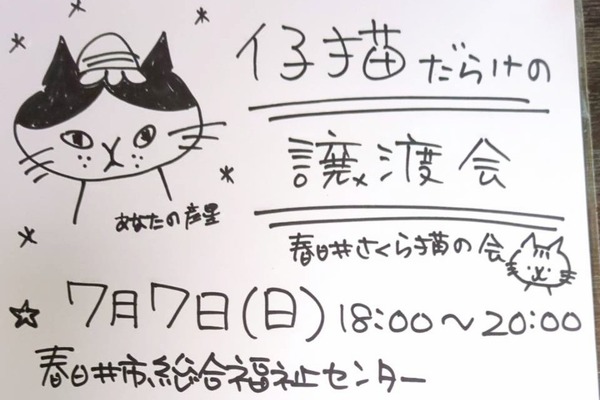 仔猫だらけの
譲渡会
あなたの彦星
春日井さくら猫の会
☆7月7日(日)18:00〜20:00
春日井市総合福祉センター